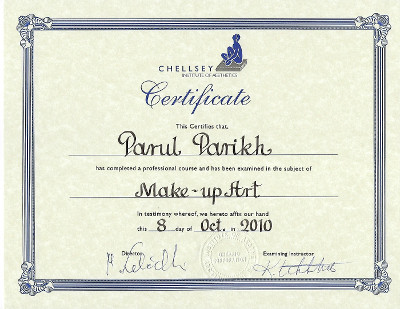 CHELLSEY
INSTITUTE OF AESTHETICS
Certificate
This Certifies that,
Parul Parikh
has completed a professional course and has been examined in the subject of
Make-up Art
In testimony whereof, we hereto affix our hand
this 8 day of Oct. in 2010
Director Examining Instructor